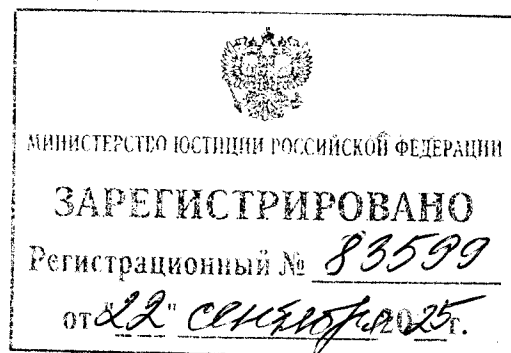 МИНИСТЕРСТВО ЮСТИЦИИ РОССИЙСКОЙ ФЕДЕРАЦИИ
ЗАРЕГИСТРИРОВАНО
Регистрационный № 83599
от "22" сентября 2025г.